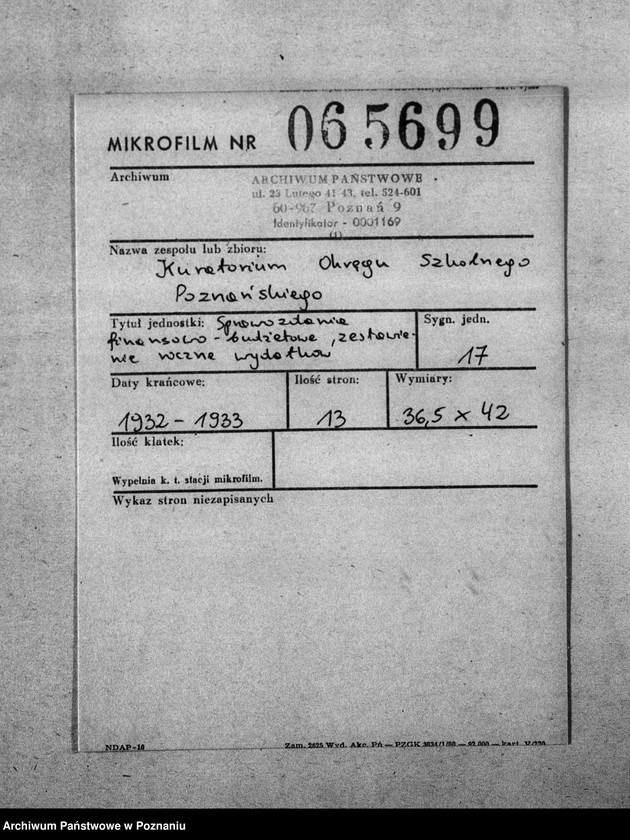 MIKROFILM NR 065699
Archiwum
ARCHIWUM PAŃSTWOWE
ul. 23 Lutego 41/43, tel. 524-601
60-967 Poznań 9
Identyfikator - 0001169
(1)
Nazwa zespołu lub zbioru:
Kuratorium Okręgu Szkolnego
Poznańskiego
Tytuł jednostki: Sprawozdanie
finansowo - budżetowe, zestawie-
nie roczne wydatków
Sygn. jedn.
17
Daty krańcowe:
1932 - 1933
Ilość stron:
13
Wymiary:
36,5 x 42
Ilość klatek:
Wypełnia k. t. stacji mikrofilm.
Wykaz stron niezapisanych
NDAP-10
Zam. 2625 Wyd. Akc. PA — PZGK 3034/1/80 — 92.000 — kart.
Archiwum Państwowe w Poznaniu